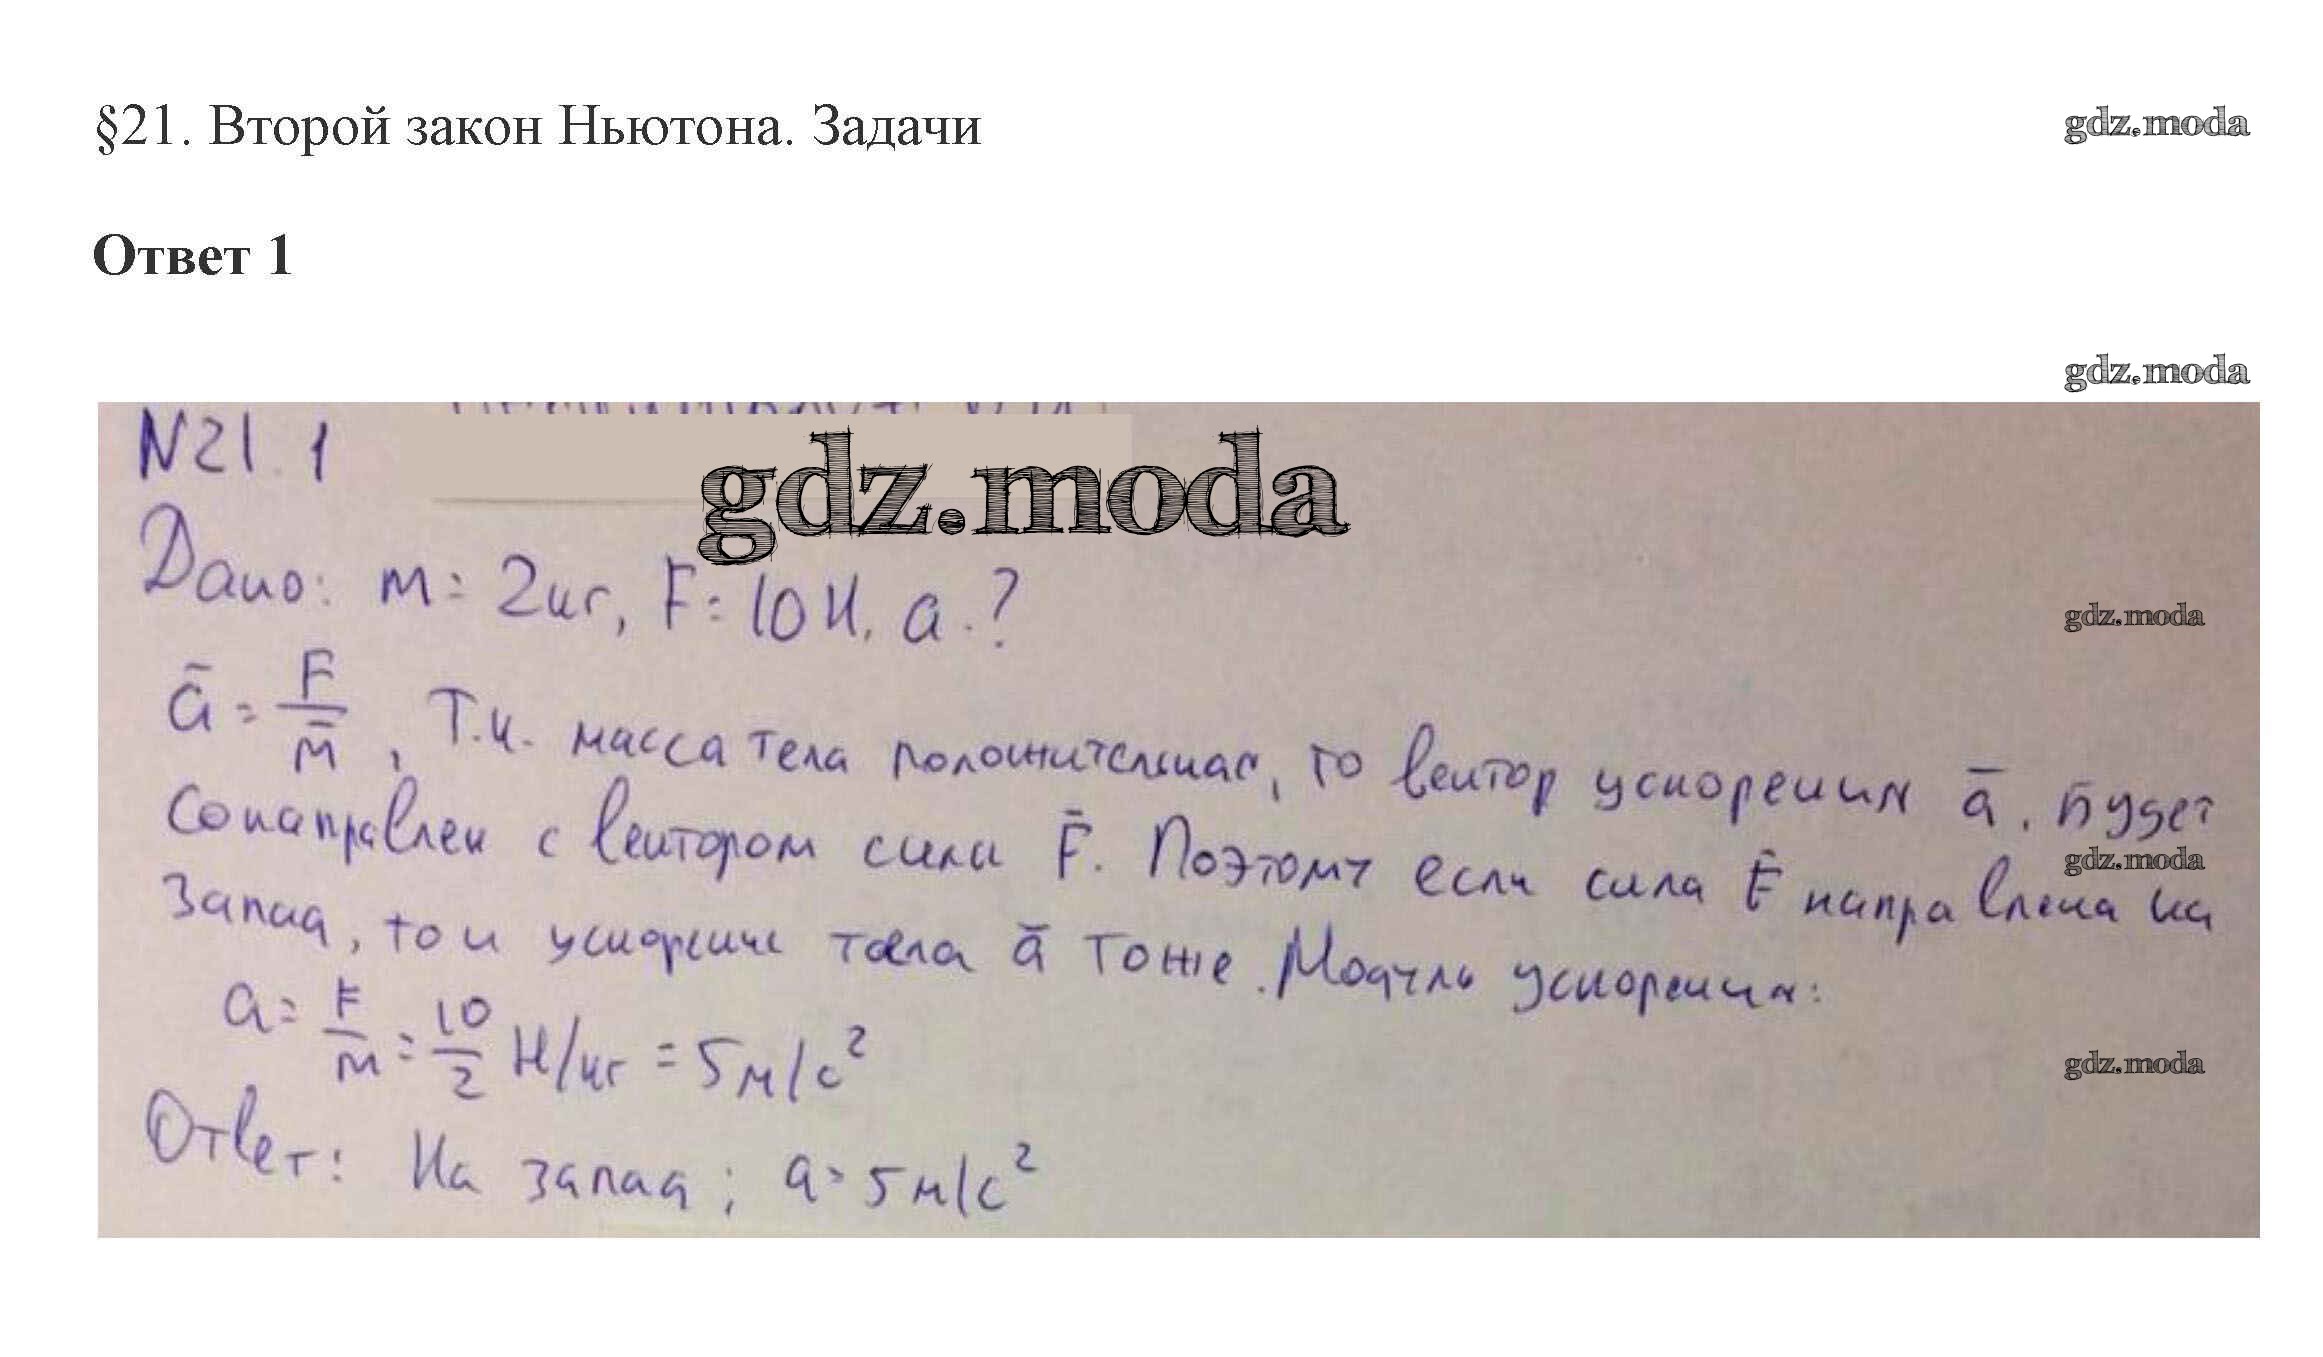 §21. Второй закон Ньютона. Задачи
gdz.moda
Ответ 1
gdz.moda
N21.1
gdz.moda
Дано: m = 2кг, F = 10Н. a - ?
gdz.moda
ā = F/m̄, Т.к. масса тела положительная, то вектор ускорения ā, будет
сонаправлен с вектором сили F̄. Поэтому если сила F̄ направлена на
gdz.moda
запад, то и ускорение тела ā тоже. Модуль ускорения:
a = F/m = 10/2 Н/кг = 5м/с²
gdz.moda
Ответ: На запад; a = 5м/с²